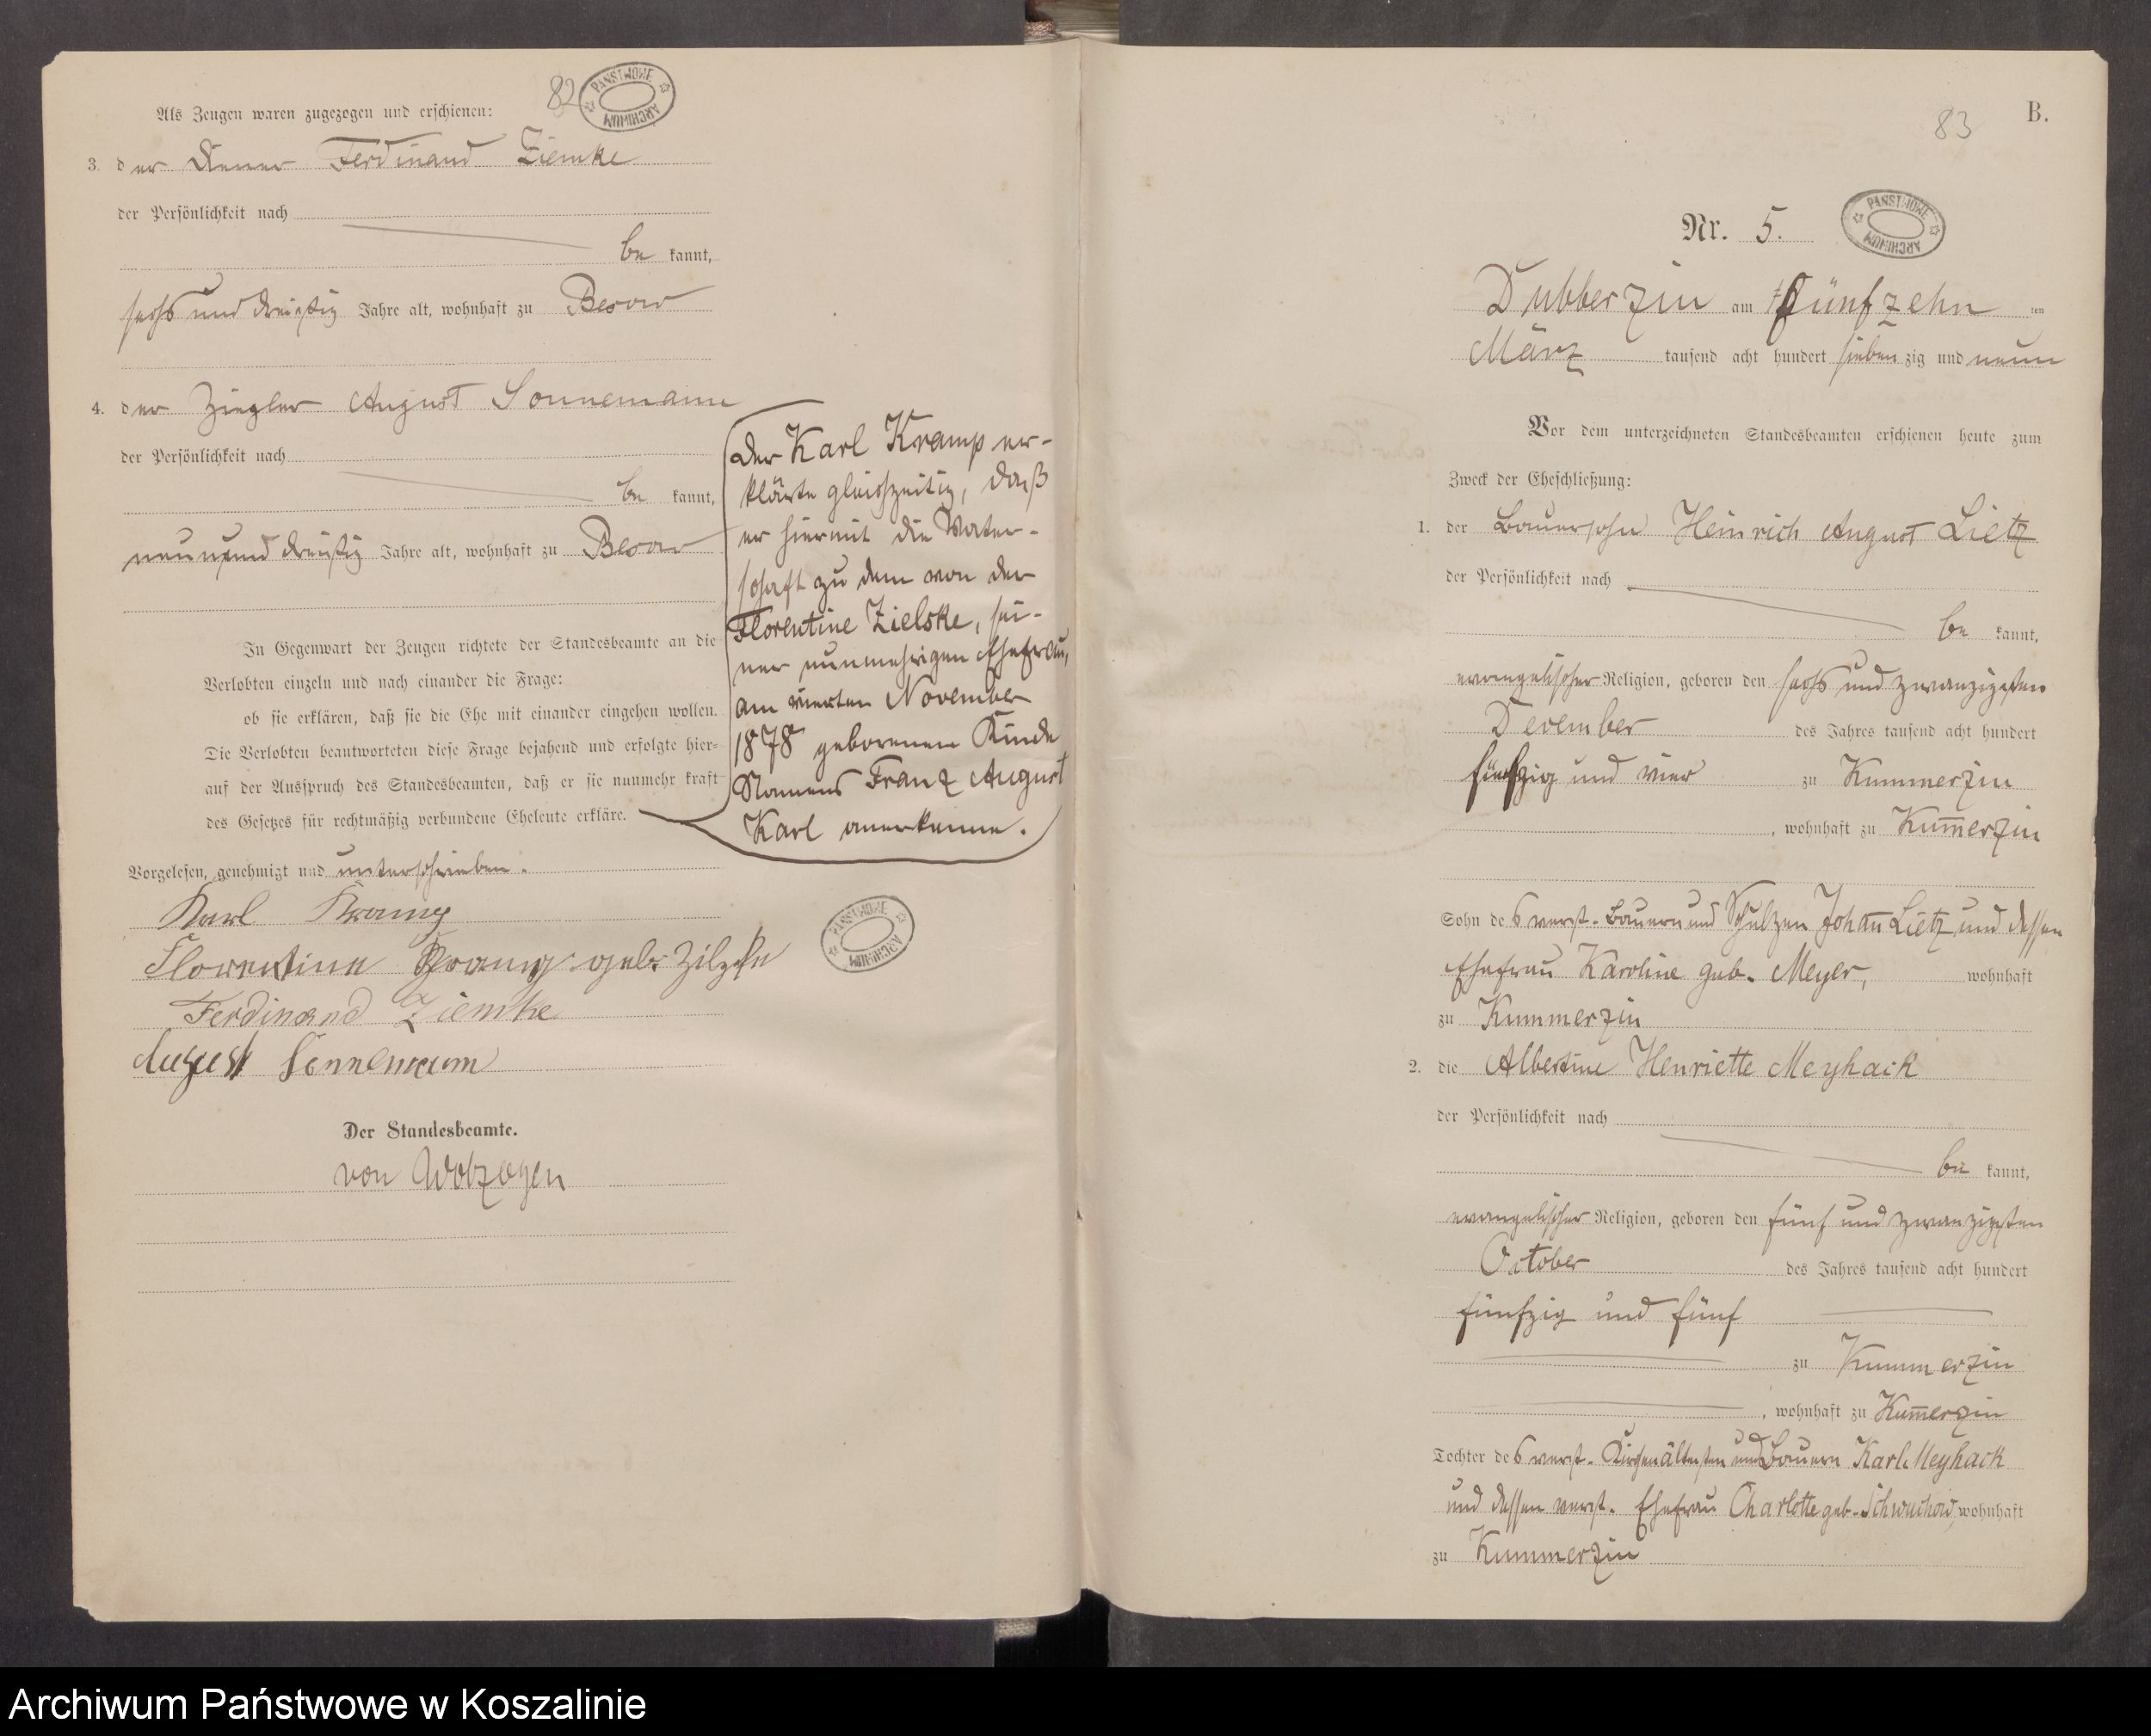 82
PANSTWOWE ARCHIWUM
Als Zeugen waren zugezogen und erschienen:
3. der Diener Ferdinand Ziemke
der Persönlichkeit nach
be kannt,
sechs und dreißig Jahre alt, wohnhaft zu Besow
4. der Ziegler August Sonnemann
der Persönlichkeit nach
be kannt,
neun und dreißig Jahre alt, wohnhaft zu Besow
In Gegenwart der Zeugen richtete der Standesbeamte an die
Verlobten einzeln und nach einander die Frage:
ob sie erklären, daß sie die Ehe mit einander eingehen wollen.
Die Verlobten beantworteten diese Frage bejahend und erfolgte hier-
auf der Ausspruch des Standesbeamten, daß er sie nunmehr kraft
des Gesetzes für rechtmäßig verbundene Eheleute erkläre.
Der Karl Kramp er-
klärte gleichzeitig, daß
er hiermit die Vater-
schaft zu dem von der
Florentine Zielske, sei-
ner nunmehrigen Ehefrau,
am vierten November
1878 geborenen Kinde
Namens Franz August
Karl anerkenne.
Vorgelesen, genehmigt und unterschrieben.
Karl Kramp
Florentine Kramp geb. Zilzke
Ferdinand Ziemke
August Sonnemann
PANSTWOWE ARCHIWUM
Der Standesbeamte.
von Wolzogen
83
B.
Nr. 5.
PANSTWOWE ARCHIWUM
Dubberzin am fünfzehn ten
März tausend acht hundert siebenzig und neun
Vor dem unterzeichneten Standesbeamten erschienen heute zum
Zweck der Eheschließung:
1. der Bauersohn Heinrich August Lietz
der Persönlichkeit nach
be kannt,
evangelischer Religion, geboren den sechs und zwanzigsten
December des Jahres tausend acht hundert
fünfzig und vier zu Kummerzin
, wohnhaft zu Kum̅erzin
Sohn des verst. Bauern und Schulzen Johan̅ Lietz und dessen
Ehefrau Karoline geb. Meyer, wohnhaft
zu Kummerzin
2. die Albertine Henriette Meyhack
der Persönlichkeit nach
be kannt,
evangelischer Religion, geboren den fünf und zwanzigsten
October des Jahres tausend acht hundert
fünfzig und fünf
zu Kummerzin
, wohnhaft zu Kum̅erzin
Tochter des verst. Kirchenältesten und Bauern Karl Meyhack
und dessen verst. Ehefrau Charlotte geb. Schwuchow, wohnhaft
zu Kummerzin
Archiwum Państwowe w Koszalinie